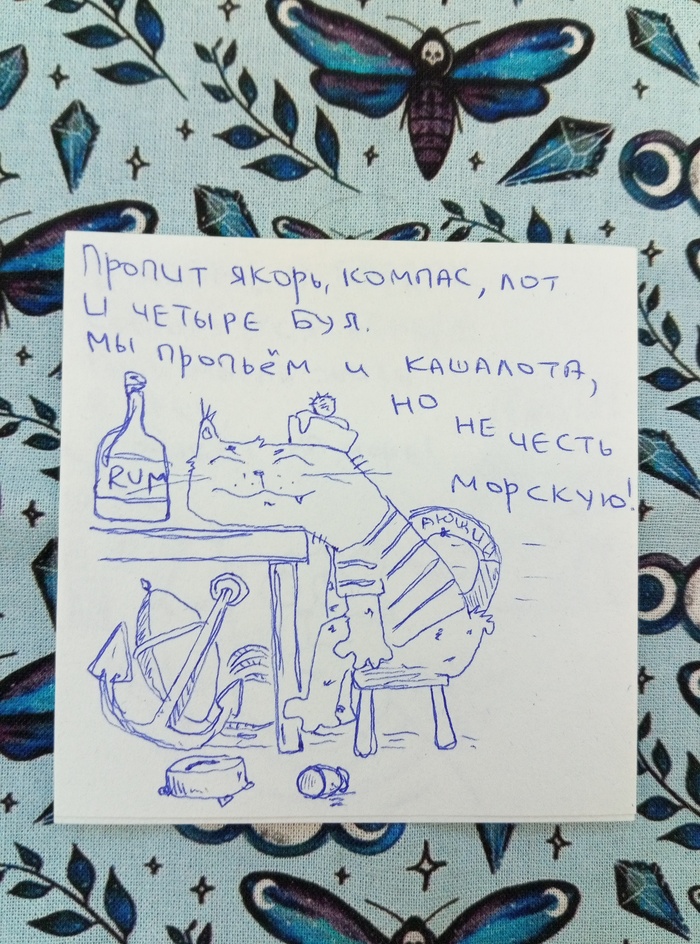 Пропит якорь, компас, лот
и четыре бул.
мы пропьём и кашалота,
но не честь
морскую!
RUM
АЮЩИ